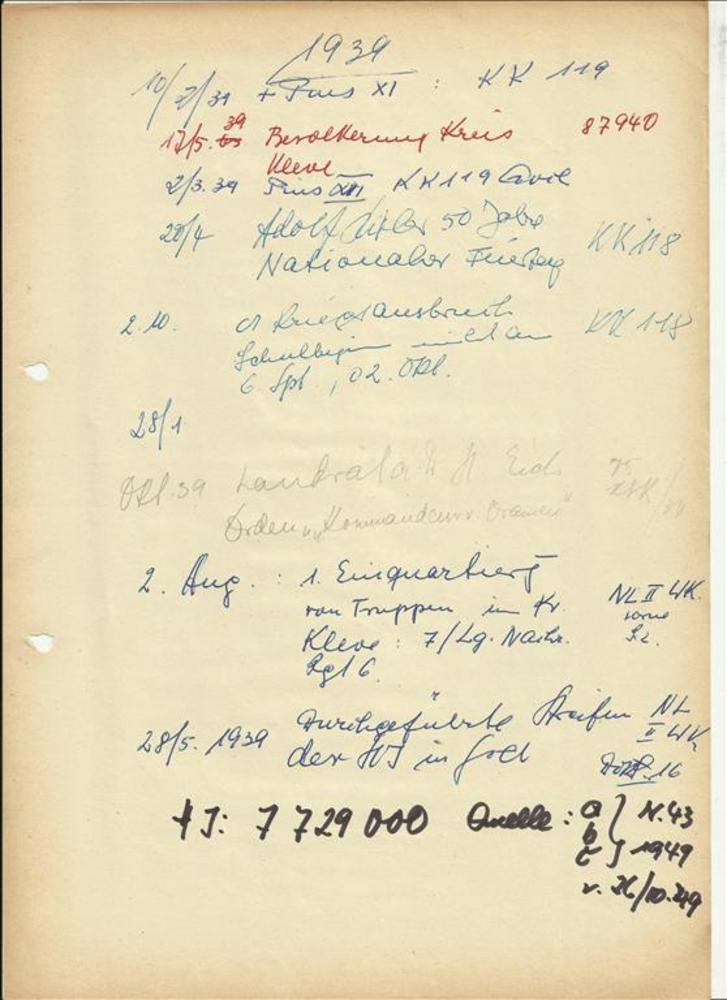 1939
10/2/39 + Pius XI : KK 119
17/5. 39 Bevölkerung Kreis 87940
Kleve
2/3.39 Pius XII KK 119
20/4 Adolf Hitler 50 Jahre
Nationaler Feiertag KK 118
2.10. Kriegsausbruch KK 118
Schulbeginn nicht am
6. Spt., 02. Okt.
28/1
Okt.39 Landrat a.D.
Orden "Kommandeur v. Oranien"
2. Aug. : 1. Einquartierg
von Truppen im Kr. NL II WK.
Kleve : 7/Lg. Nachr. vorne
Rgt 6. S2.
28/5. 1939 Durchgeführte Streifen NL
der HJ in Goch II WK
Dok. 16
HJ: 7 729 000 Quelle : a } N.43
b
c } 1949
v. 26/10.49